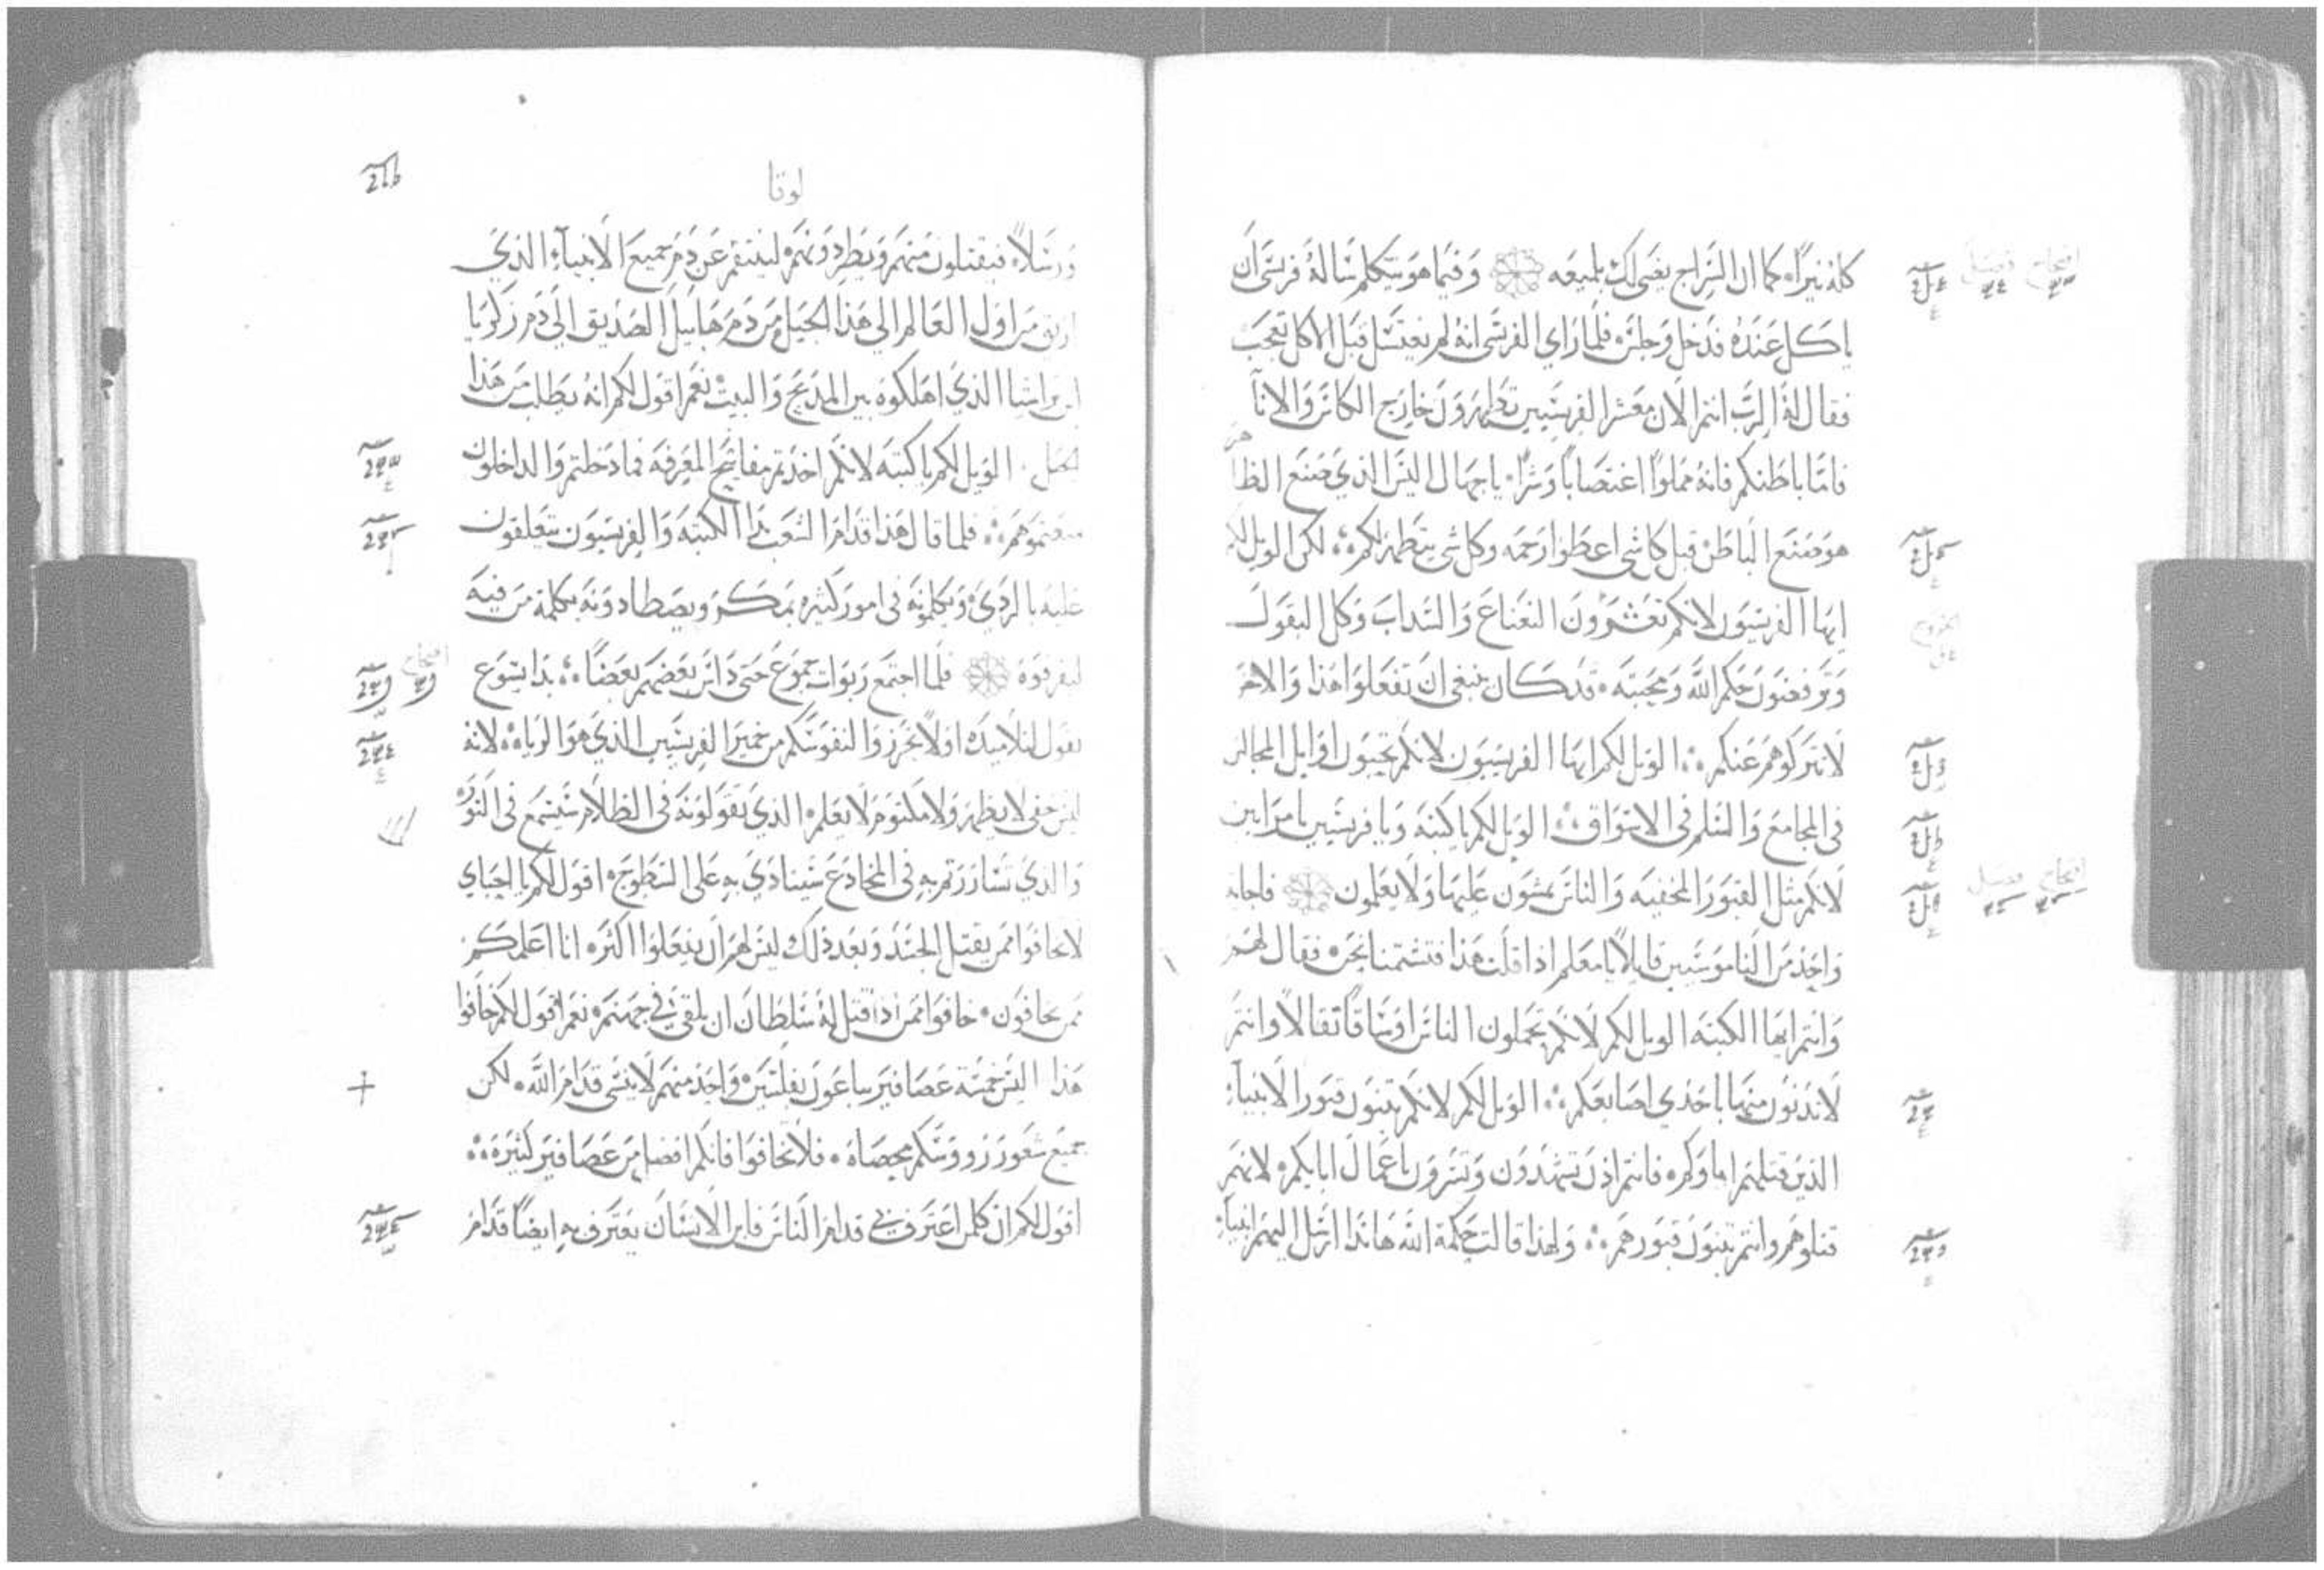 كله نيرا، كما ان السراج يضي لك بلميعه وفيما هو يتكلم ساله فريسي ان
ياكل عنده فدخل وجلس، فلما راي الفريسي انه لم يغتسل قبل الاكل تعجب
فقال له الرب انتم الان معشر الفريسيين تطهرون خارج الكاس والانآ
فاما باطنكم فانه مملوا اغتصابا وشرا، يا جهال اليس الذي صنع الظاهر
هو صنع الباطن قبل كل شي اعطوا رحمه وكل شي يتطهر لكم، لكن الويل لكم
ايها الفريسيون لانكم تعشرون النعناع والسداب وكل البقول
وترفضون حكم الله ومحبته، قد كان ينبغي ان تفعلوا هذا والاخر
لا تتركوهم عنكم، الويل لكم ايها الفريسيون لانكم تحبون اوايل المجالس
في المجامع والسلم في الاسواق، الويل لكم يا كتبه ويا فريسيين يا مرايين
لانكم مثل القبور المخفيه والناس يمشون عليها ولا يعلمون فاجابه
واحد من الناموسيين قايلا يا معلم اذا قلت هذا فتشتمنا نحن، فقال لهم
وانتم ايها الكتبه الويل لكم لانكم تحملون الناس اوساقا ثقالا وانتم
لا تدنون منها باحدي اصابعكم، الويل لكم لانكم تبنون قبور الانبيآء
الذين قتلهم اباوكم، فانتم اذن تشهدون وتسرون باعمال ابايكم، لانهم
قتلوهم وانتم تبنون قبورهم، ولهذا قالت حكمة الله هانذا ارسل اليهم انبيآء
لوقا
ورسلا، فيقتلون منهم ويطردونهم، لينتقم عن دم جميع الانبيآء الذي
اهرق من اول العالم الي هذا الجيل، من دم هابيل الصديق الي دم زكريا
ابن براشيا الذي اهلكوه بين المذبح والبيت، نعم اقول لكم انه يطلب من هذا
الجيل، الويل لكم يا كتبه لانكم اخذتم مفاتيح المعرفه فما دخلتم والداخلون
منعتموهم، فلما قال هذا قدام الشعب بدا الكتبه والفريسيون يتعلقون
عليه بالردي، ويكلمونه في امور كثيره بمكر ويصطادونه بكلمة من فيه
ليقرفوه فلما اجتمع ربوات جموع حتى داس بعضهم بعضا، بدا يسوع
يقول لتلاميده، اولا تحرزوا لنفوسكم من خمير الفريسيين الذي هو الرياه، لانه
ليس خفي لا يظهر ولا مكتوم لا يعلم، الذي تقولونه في الظلام سيسمع في النور،
والذي تساررتم به في المخادع سينادي به على السطوح، اقول لكم يا احباي
لا تخافوا ممن يقتل الجسد وبعد ذلك ليس لهم ان يفعلوا اكثر، انا اعلمكم
ممن تخافون، خافوا ممن اذا قتل له سلطان ان يلقي في جهنم، نعم اقول لكم خافوا
هذا اليس خمسة عصافير يباعون بفلسين، واحد منهم لا ينسى قدام الله، لكن
جميع شعور رووسكم محصاه، فلا تخافوا فانكم افضل من عصافير كثيره،
اقول لكم ان كلمن اعترف بي قدام الناس فابن الانسان يعترف به ايضا قدام